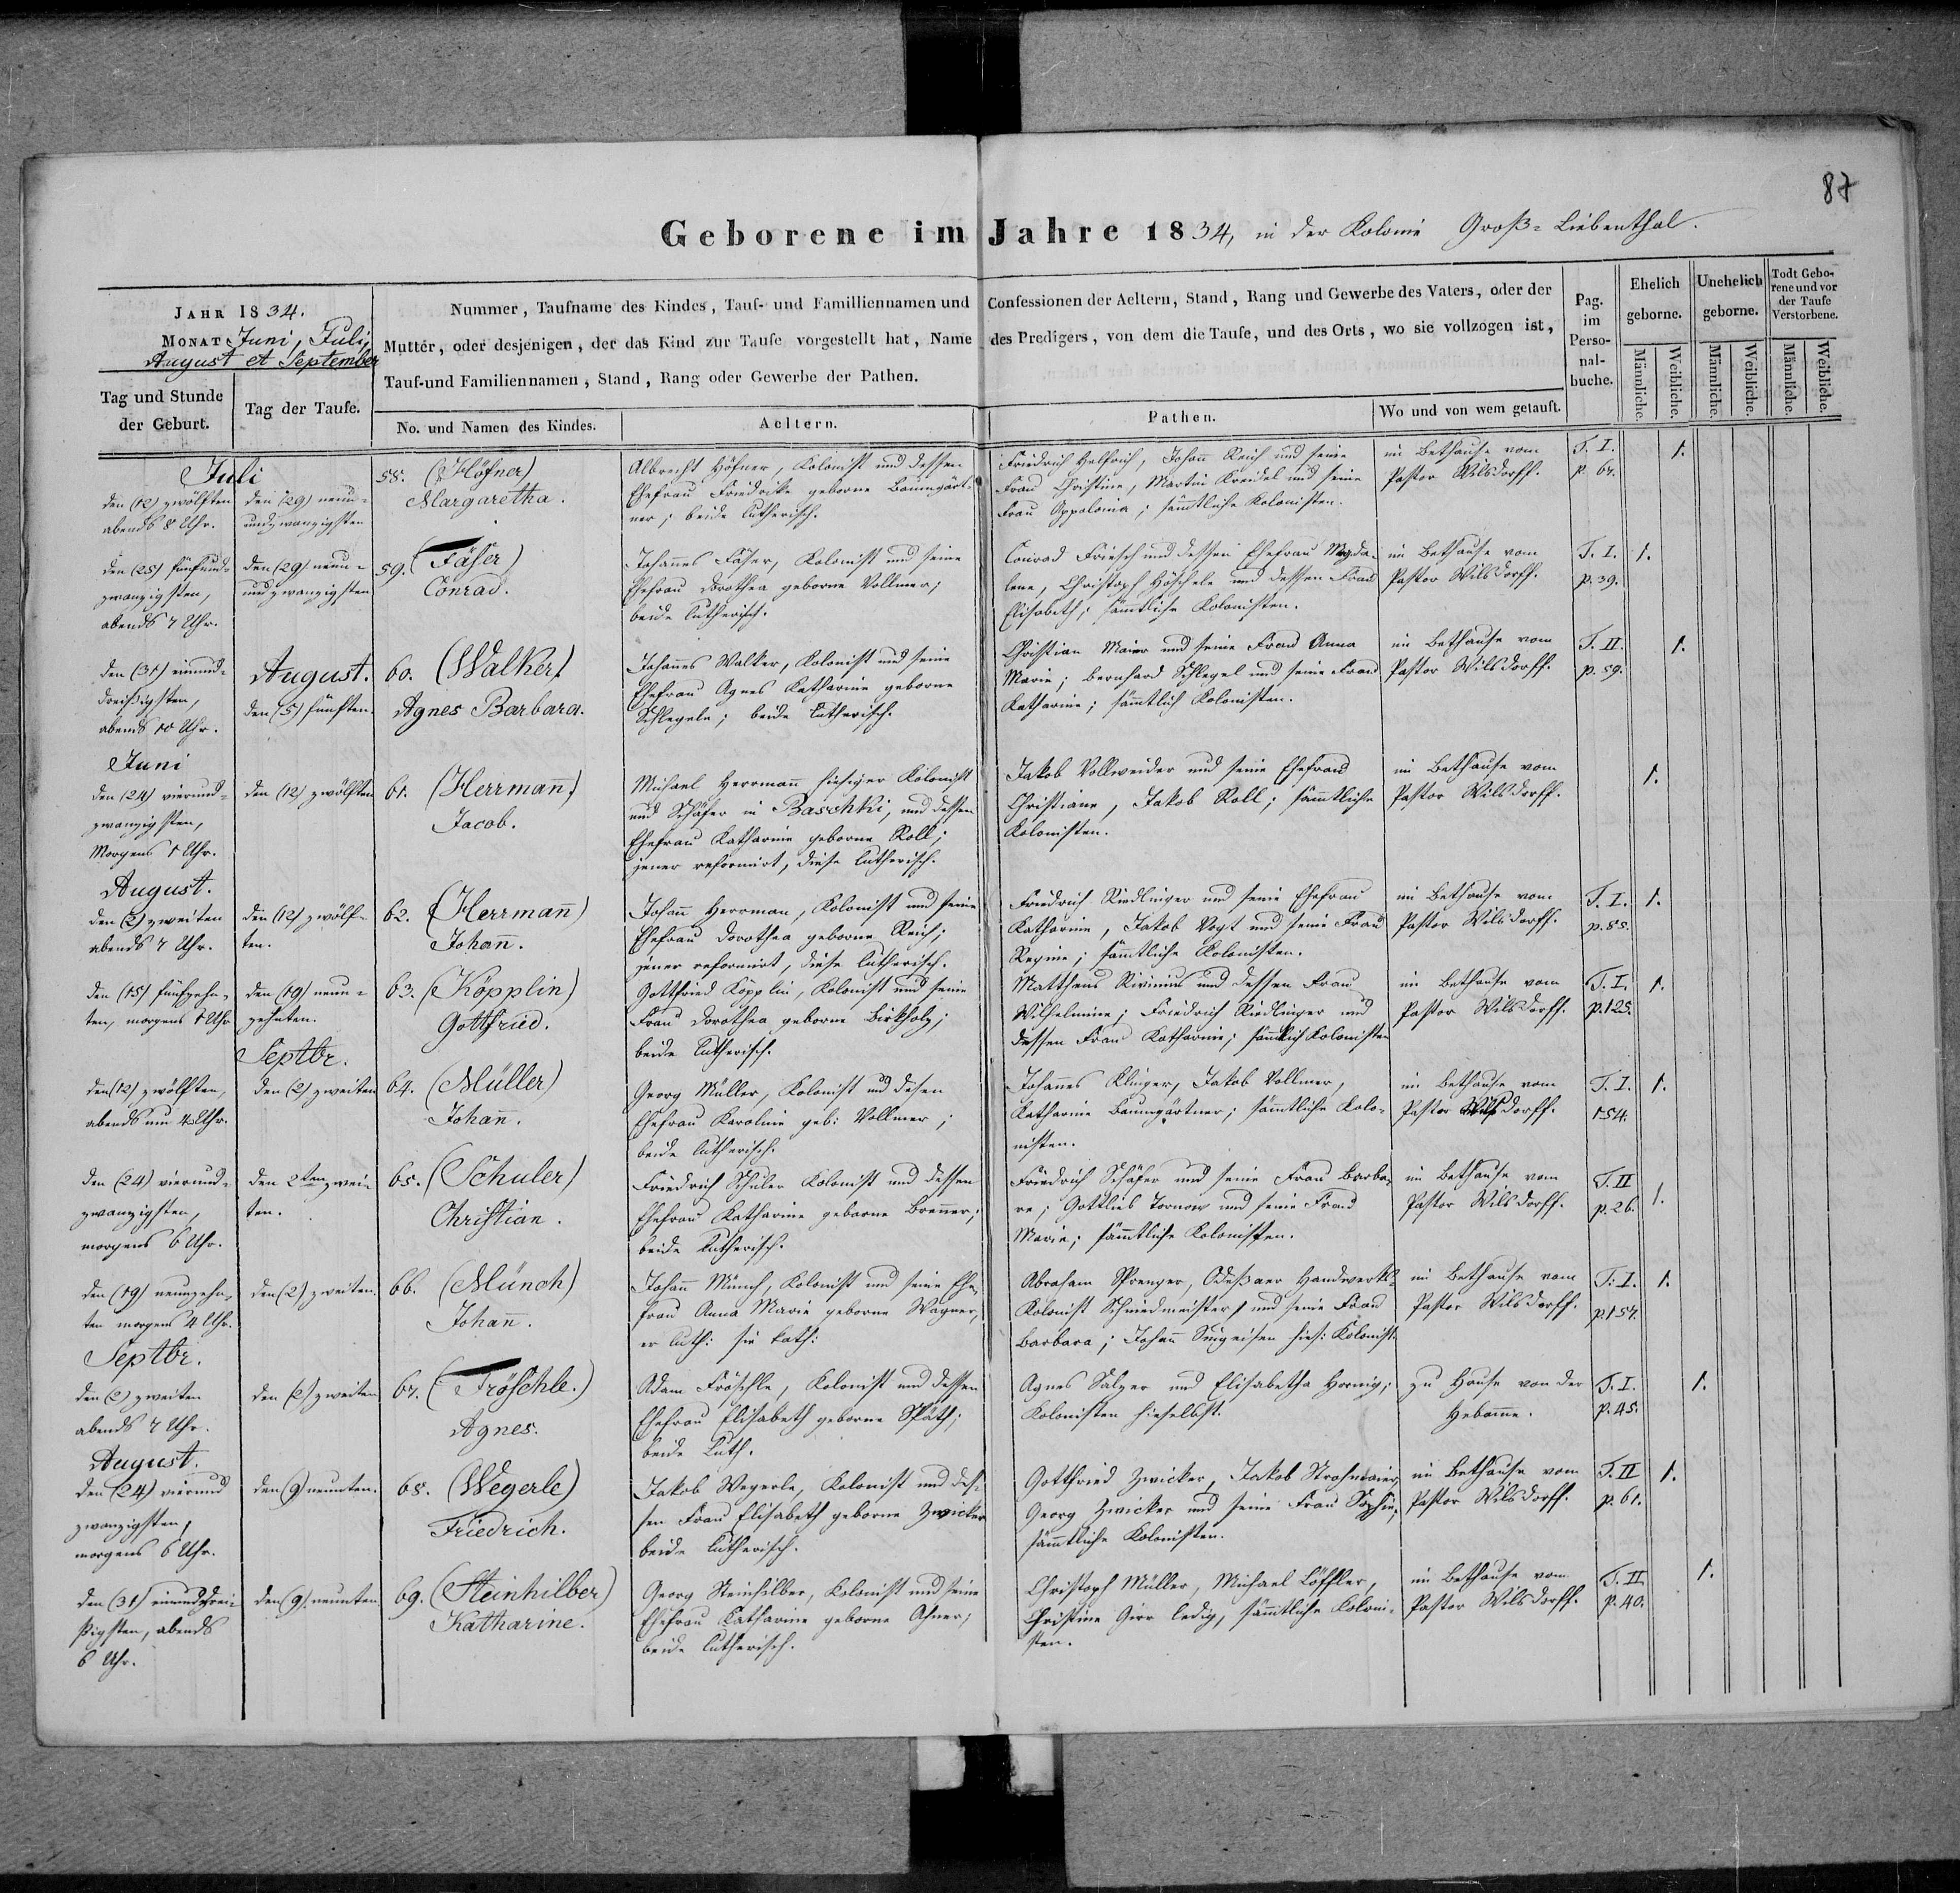 87
Geborene im Jahre 1834, in der Kolonie Groß-Liebenthal.
JAHR 1834.
MONAT Juni, Juli,
August et September
Tag und Stunde
der Geburt.
Tag der Taufe.
Nummer, Taufname des Kindes, Tauf- und Familliennamen und Confessionen der Aeltern, Stand, Rang und Gewerbe des Vaters, oder der
Mutter, oder desjenigen, der das Kind zur Taufe vorgestellt hat, Name des Predigers, von dem die Taufe, und des Orts, wo sie vollzogen ist,
Tauf-und Familiennamen, Stand, Rang oder Gewerbe der Pathen.
No. und Namen des Kindes.
Aeltern.
Pathen.
Wo und von wem getauft.
Pag.
im
Perso-
nal-
buche.
Ehelich
geborne.
Unehelich
geborne.
Todt Gebo-
rene und vor
der Taufe
Verstorbene.
Männliche.
Weibliche.
Männliche.
Weibliche.
Männliche.
Weibliche.
Juli
den (12) zwölften
abends 8 Uhr.
den (29) neun-
undzwanzigsten
58. (Höfner)
Margaretha.
Albrecht Höfner, Kolonist und dessen
Ehefrau Friedrike geborne Baumgärt-
ner; beide lutherisch.
Friedrich Helfrich, Johann Reich und seine
Frau Christine, Martin Kreidel und seine
Frau Appolonia; sämtliche Kolonisten.
im Bethause vom
Pastor Wilsdorff.
T. I.
p. 67.
1.
den (25) fünfund-
zwanzigsten,
abends 7 Uhr.
den (29) neun-
undzwanzigsten
59. (Fäser)
Conrad.
Johannes Fäser, Kolonist und seine
Ehefrau Dorothea geborne Vollmer;
beide lutherisch.
Conrad Friesch und dessen Ehefrau Magda-
lene, Christoph Höschele und dessen Frau
Elisabeth; sämtliche Kolonisten.
im Bethause vom
Pastor Wilsdorff.
T. I.
p. 39.
1.
den (31) einund-
dreißigsten,
abends 10 Uhr.
August.
den (5) fünften.
60. (Walker)
Agnes Barbara.
Johannes Walker, Kolonist und seine
Ehefrau Agnes Katharine geborne
Schlegeln; beide lutherisch.
Christian Maier und seine Frau Anna
Marie; Bernhard Schlegel und seine Frau
Katharine; sämtlich Kolonisten.
im Bethause vom
Pastor Wilsdorff.
T. II.
p. 59.
1.
Juni
den (24) vierund-
zwanzigsten,
Morgens 1 Uhr.
den (12) zwölften
61. (Herrmann)
Jacob.
Michael Herrmann hiesiger Kolonist
und Schäfer in Baschki, und dessen
Ehefrau Katharine geborne Roll;
jener reformirt, diese lutherisch.
Jakob Vollweider und seine Ehefrau
Christiane, Jakob Roll; sämtliche
Kolonisten.
im Bethause vom
Pastor Wilsdorff.
1.
August.
den (2) zweiten
abends 7 Uhr.
den (12) zwölf-
ten.
62. (Herrmann)
Johann.
Johann Herrman, Kolonist und seine
Ehefrau Dorothea geborne Reich;
jener reformirt, diese lutherisch.
Friedrich Riedlinger und seine Ehefrau
Katharine, Jakob Vogt und seine Frau
Regine; sämtliche Kolonisten.
im Bethause vom
Pastor Wilsdorff.
T. I.
p. 85.
1.
den (15) fünfzehn-
ten, morgens 1 Uhr
den (19) neun-
zehnten.
63. (Köpplin)
Gottfried.
Gottfried Köpplin, Kolonist und seine
Frau Dorothea geborne Birkholz;
beide lutherisch.
Matthäus Rivinius und dessen Frau
Wilhelmine; Friedrich Riedlinger und
dessen Frau Katharine; sämtlich Kolonisten
im Bethause vom
Pastor Wilsdorff.
T. I.
p. 125.
1.
Septbr.
den (12) zwölften,
abends um 4 Uhr.
den (2) zweiten
64. (Müller)
Johann.
Georg Müller, Kolonist und dessen
Ehefrau Karoline geb: Vollmer;
beide lutherisch.
Johannes Klinger, Jakob Vollmer,
Katharine Baumgärtner; sämtliche Kolo-
nisten.
im Bethause vom
Pastor Wilsdorff.
T. I.
154.
1.
den (24) vierund-
zwanzigsten,
morgens 6 Uhr.
den 2ten zwei-
ten.
65. (Schuler)
Christian.
Friedrich Schuler Kolonist und dessen
Ehefrau Katharine geborne Brenner;
beide lutherisch.
Friedrich Schäfer und seine Frau Barba-
re; Gottlieb Tornow und seine Frau
Marie; sämtliche Kolonisten.
im Bethause vom
Pastor Wilsdorff.
T. II
p. 26.
1.
den (19) neunzehn-
ten morgens 4 Uhr.
den (2) zweiten.
66. (Münch)
Johann.
Johann Münch, Kolonist und seine Ehe-
frau Anna Marie geborne Wagner,
er luth: sie kath:
Abraham Sprenger, Odeßaer Handwerks-
Kolonist Schmiedmeister und seine Frau
Barbara; Johann Singeisen hies: Kolonist.
im Bethause vom
Pastor Wilsdorff.
T: I.
p. 157.
1.
Septbr.
den (2) zweiten
abends 7 Uhr.
den (2) zweiten
67. (Fröschle.)
Agnes.
Adam Fröschle, Kolonist und dessen
Ehefrau Elisabeth geborne Späth;
beide luth.
Agnes Salzer und Elisabetha Hornig;
Kolonisten hieselbst.
zu Hause von der
Hebamme.
T. I.
p. 45.
1.
August.
den (24) vierund
zwanzigsten,
morgens 6 Uhr.
den (9) neunten.
68. (Wegerle)
Friedrich.
Jakob Wegerle, Kolonist und des-
sen Frau Elisabeth geborne Zwicker
beide lutherisch.
Gottfried Zwicker, Jakob Strohmaier,
Georg Zwicker und seine Frau Sophie;
sämtliche Kolonisten.
im Bethause vom
Pastor Wilsdorff.
T. II
p. 61.
1.
den (31) einunddrei-
ßigsten, abends
6 Uhr.
den (9) neunten.
69. (Steinhilber)
Katharine.
Georg Steinhilber, Kolonist und seine
Ehefrau Katharine geborne
beide lutherisch.
Christoph Müller, Michael Löffler,
Christine Girr ledig, sämtliche Koloni-
sten.
im Bethause vom
Pastor Wilsdorff.
T. II.
p. 40.
1.